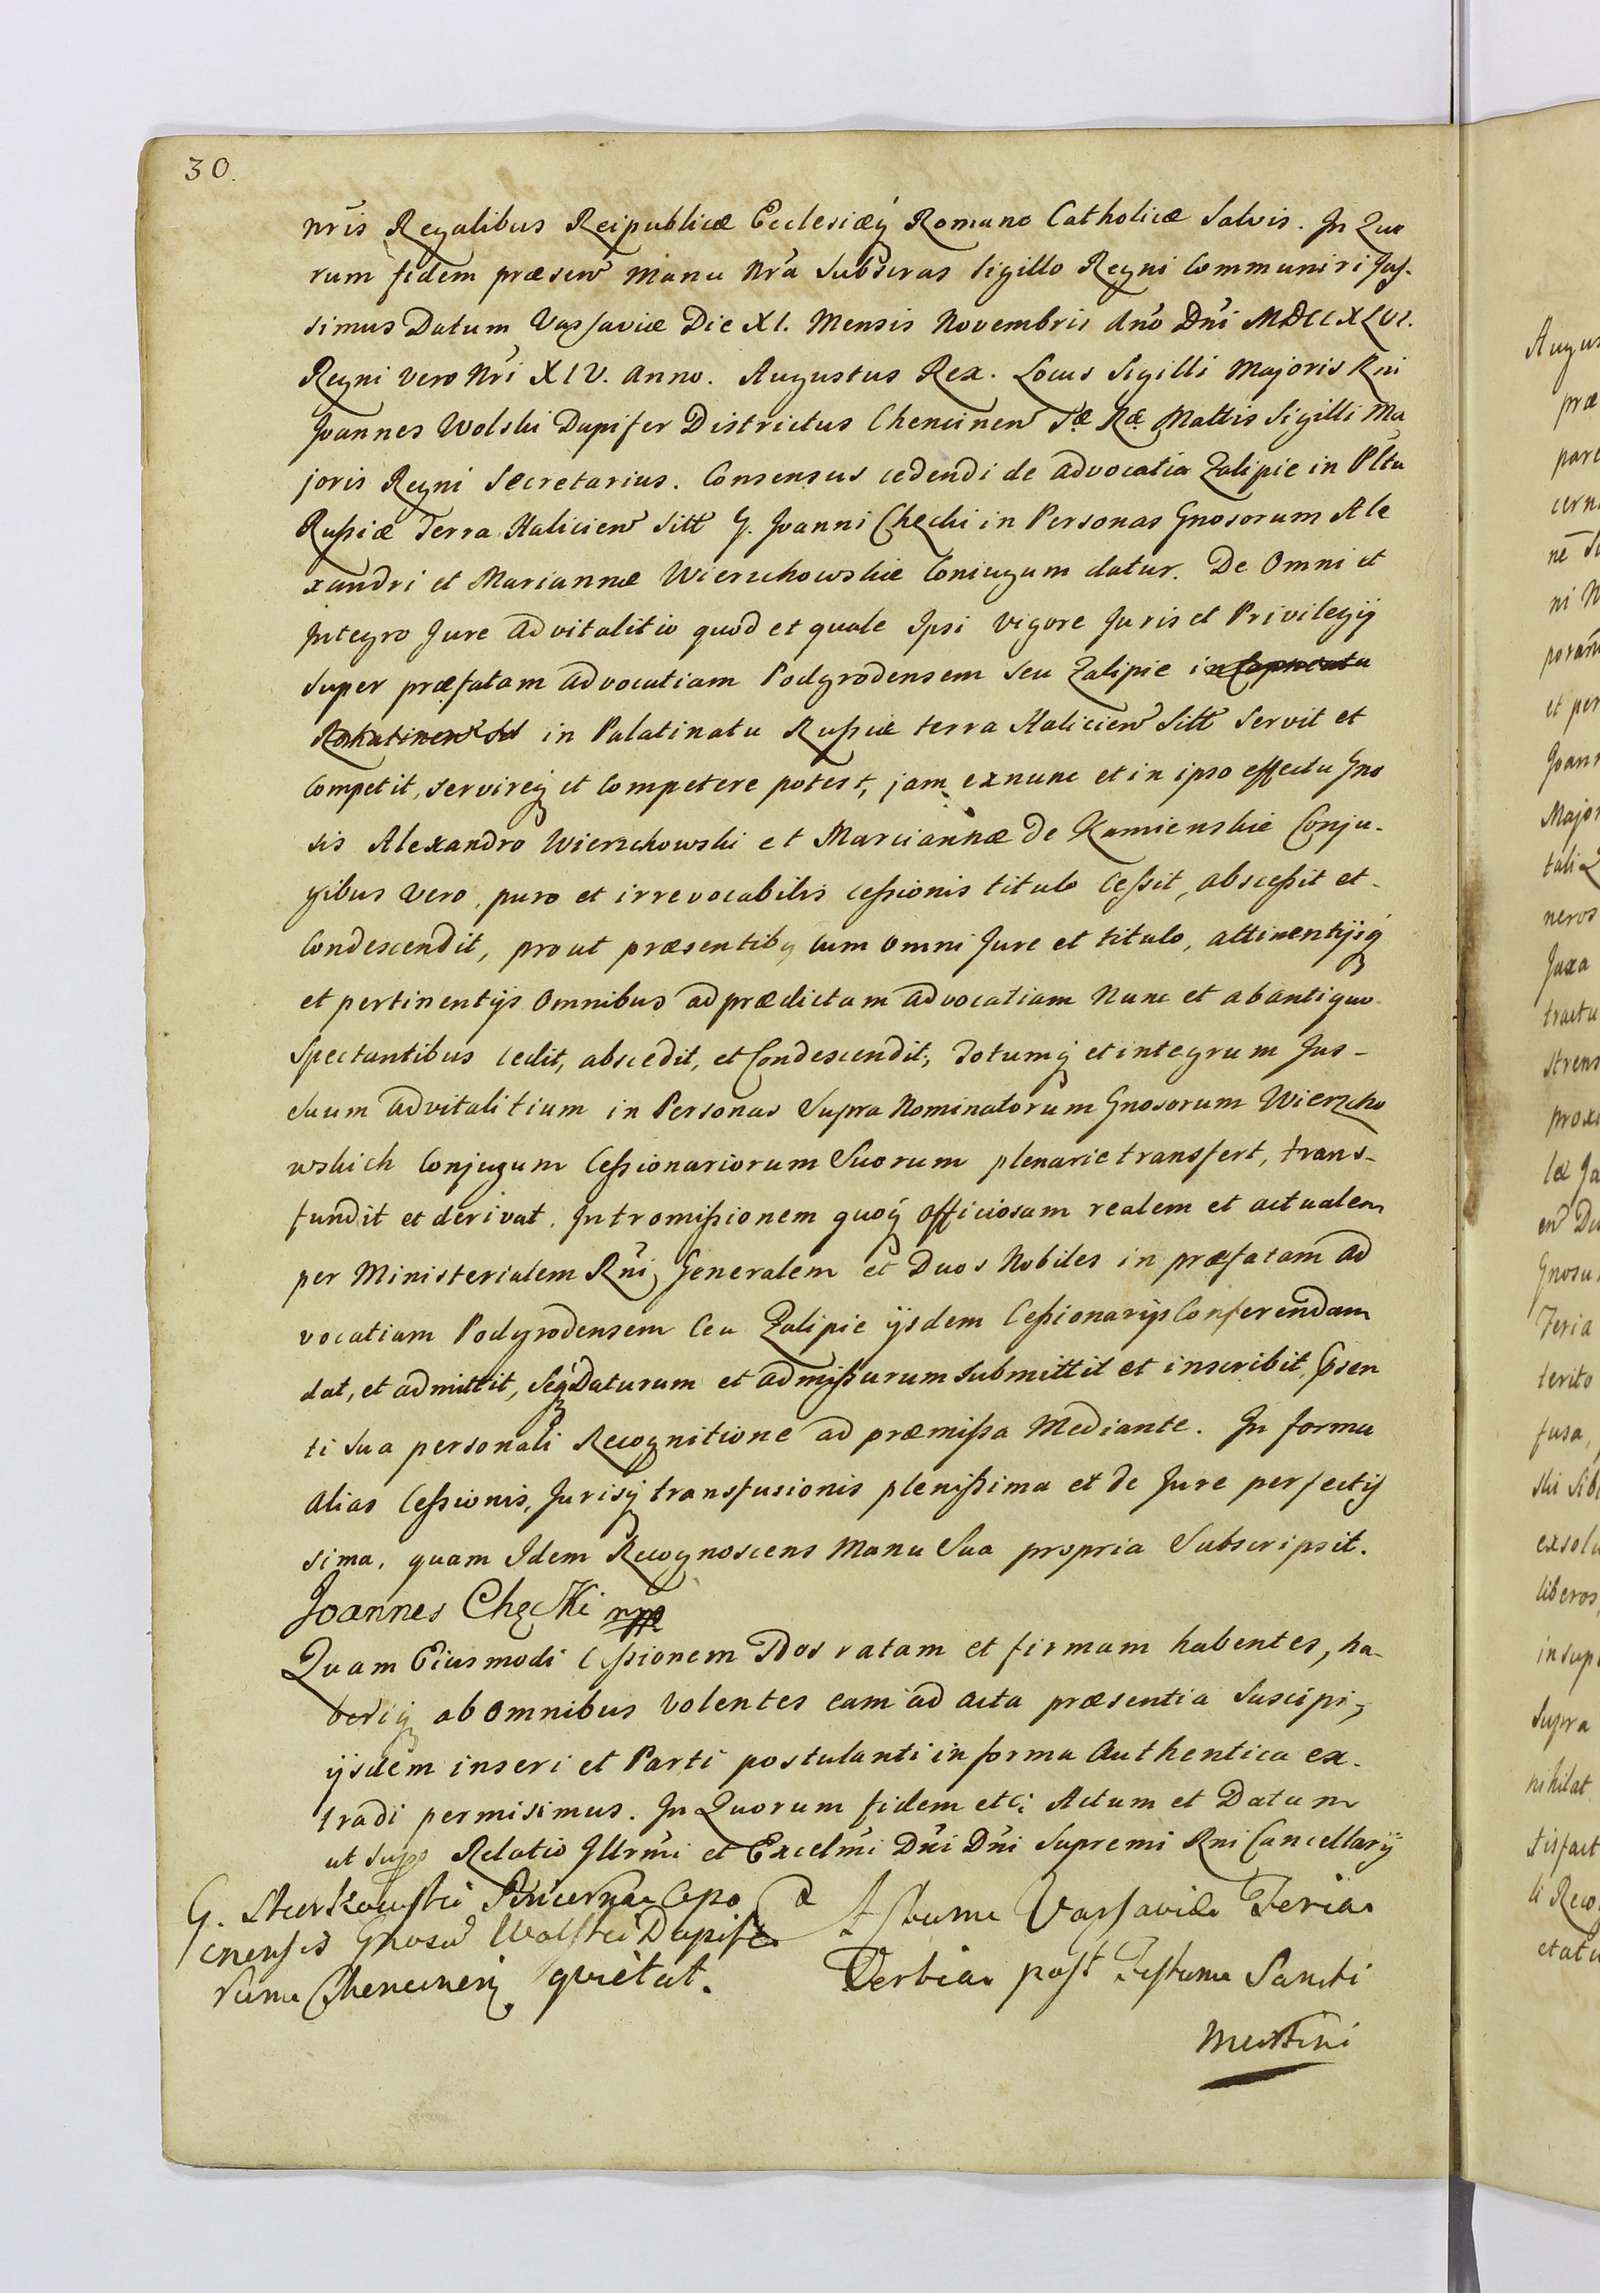 30.
nr̃is Regalibus Reipublicæ Ecclesiæq́ Romano Catholicæ Salvis. In Quo
rum fidem præsen̄ manu nr̃a Subscras Sigillo Regni Communiri Jus.
simus Datum Varsaviæ Die XI. Mensis Novembris An̄o Dn̄i MDCCXLVI.
Regni vero Nr̃i XIV. anno. Augustus Rex. Locus Sigilli Majoris Rni
Joannes Wolski Dapifer Districtus Chencinen̄ S.æ R.æ Mattis Sigilli Ma
joris Regni Secretarius. Consensus cedendi de advocatia Zalipie in Pltu
Russiæ Terra Halicien̄ Sitt G. Joanni Chęcki in Personas Gnosorum Ale
xandri et Mariannæ Wierzchowskie Coniugum datur. De Omni et
Integro Jure advitalitio quod et quale Ipsi vigore Juris et Privilegij
super præfatam advocatiam Podgrodensem seu Zalipie in
in Palatinatu Russiæ terra Halicien̄ Sitt Servit et
Competit, servireq́ et Competere potest, jam exnunc et in ipso effectu Gno
sis Alexandro Wierzchowski et Marciannæ de Kamienskie Conju-
gibus vero, puro et irrevocabilis cessionis titulo Cessit, abscessit et-
Condescendit, prout præsentibq cum omni Jure et titulo, attinentijsq́
et pertinentijs Omnibus ad prædictam advocatiam Nunc et ab antiquo
Spectantibus cedit, abscedit, et Condescendit, Totumq́ et integrum Jus-
Suum advitalitium in Personas Supra Nominatorum Gnosorum Wierzcho
wskich Conjugum Cessionariorum Suorum plenarie transfert, trans-
fundit et derivat. Intromissionem quoq́ officiosam realem et actualem
per Ministerialem Rn̄i Generalem et Duos Nobiles in præfatam ad
vocatiam Podgrodensem Ceu Zalipie ijsdem Cessionarijs Conferendam
dat, et admittit, Seq́ Daturum et admissurum submittit et inscribit, p̃sen
ti sua personali Recognitione ad præmissa Mediante. In forma
alias Cessionis, Jurisq́ transfusionis plenissima et de Jure perfectis
sima, quam Idem Recognoscens Manu Sua propria Subscripsit.
Joannes Chęcki mpp
Quam Eiusmodi Cessionem Nos ratam et firmam habentes, ha-
beriq́ ab Omnibus volentes eam ad acta præsentia suscipi,
ijsdem inseri et Parti postulanti in forma Authentica ex-
tradi permisimus. In Quorum fidem etc: Actum et Datum
ut supra Relatio Illrm̄i et Excelm̄i Dn̄i Dn̄i Supremi Rni Cancellarij
G. Pincerna
Gnosū Wolski Dapife
rum Chencinen quietat.
Actum Varsaviæ Feria
Tertia post Festum Sancti
Martini